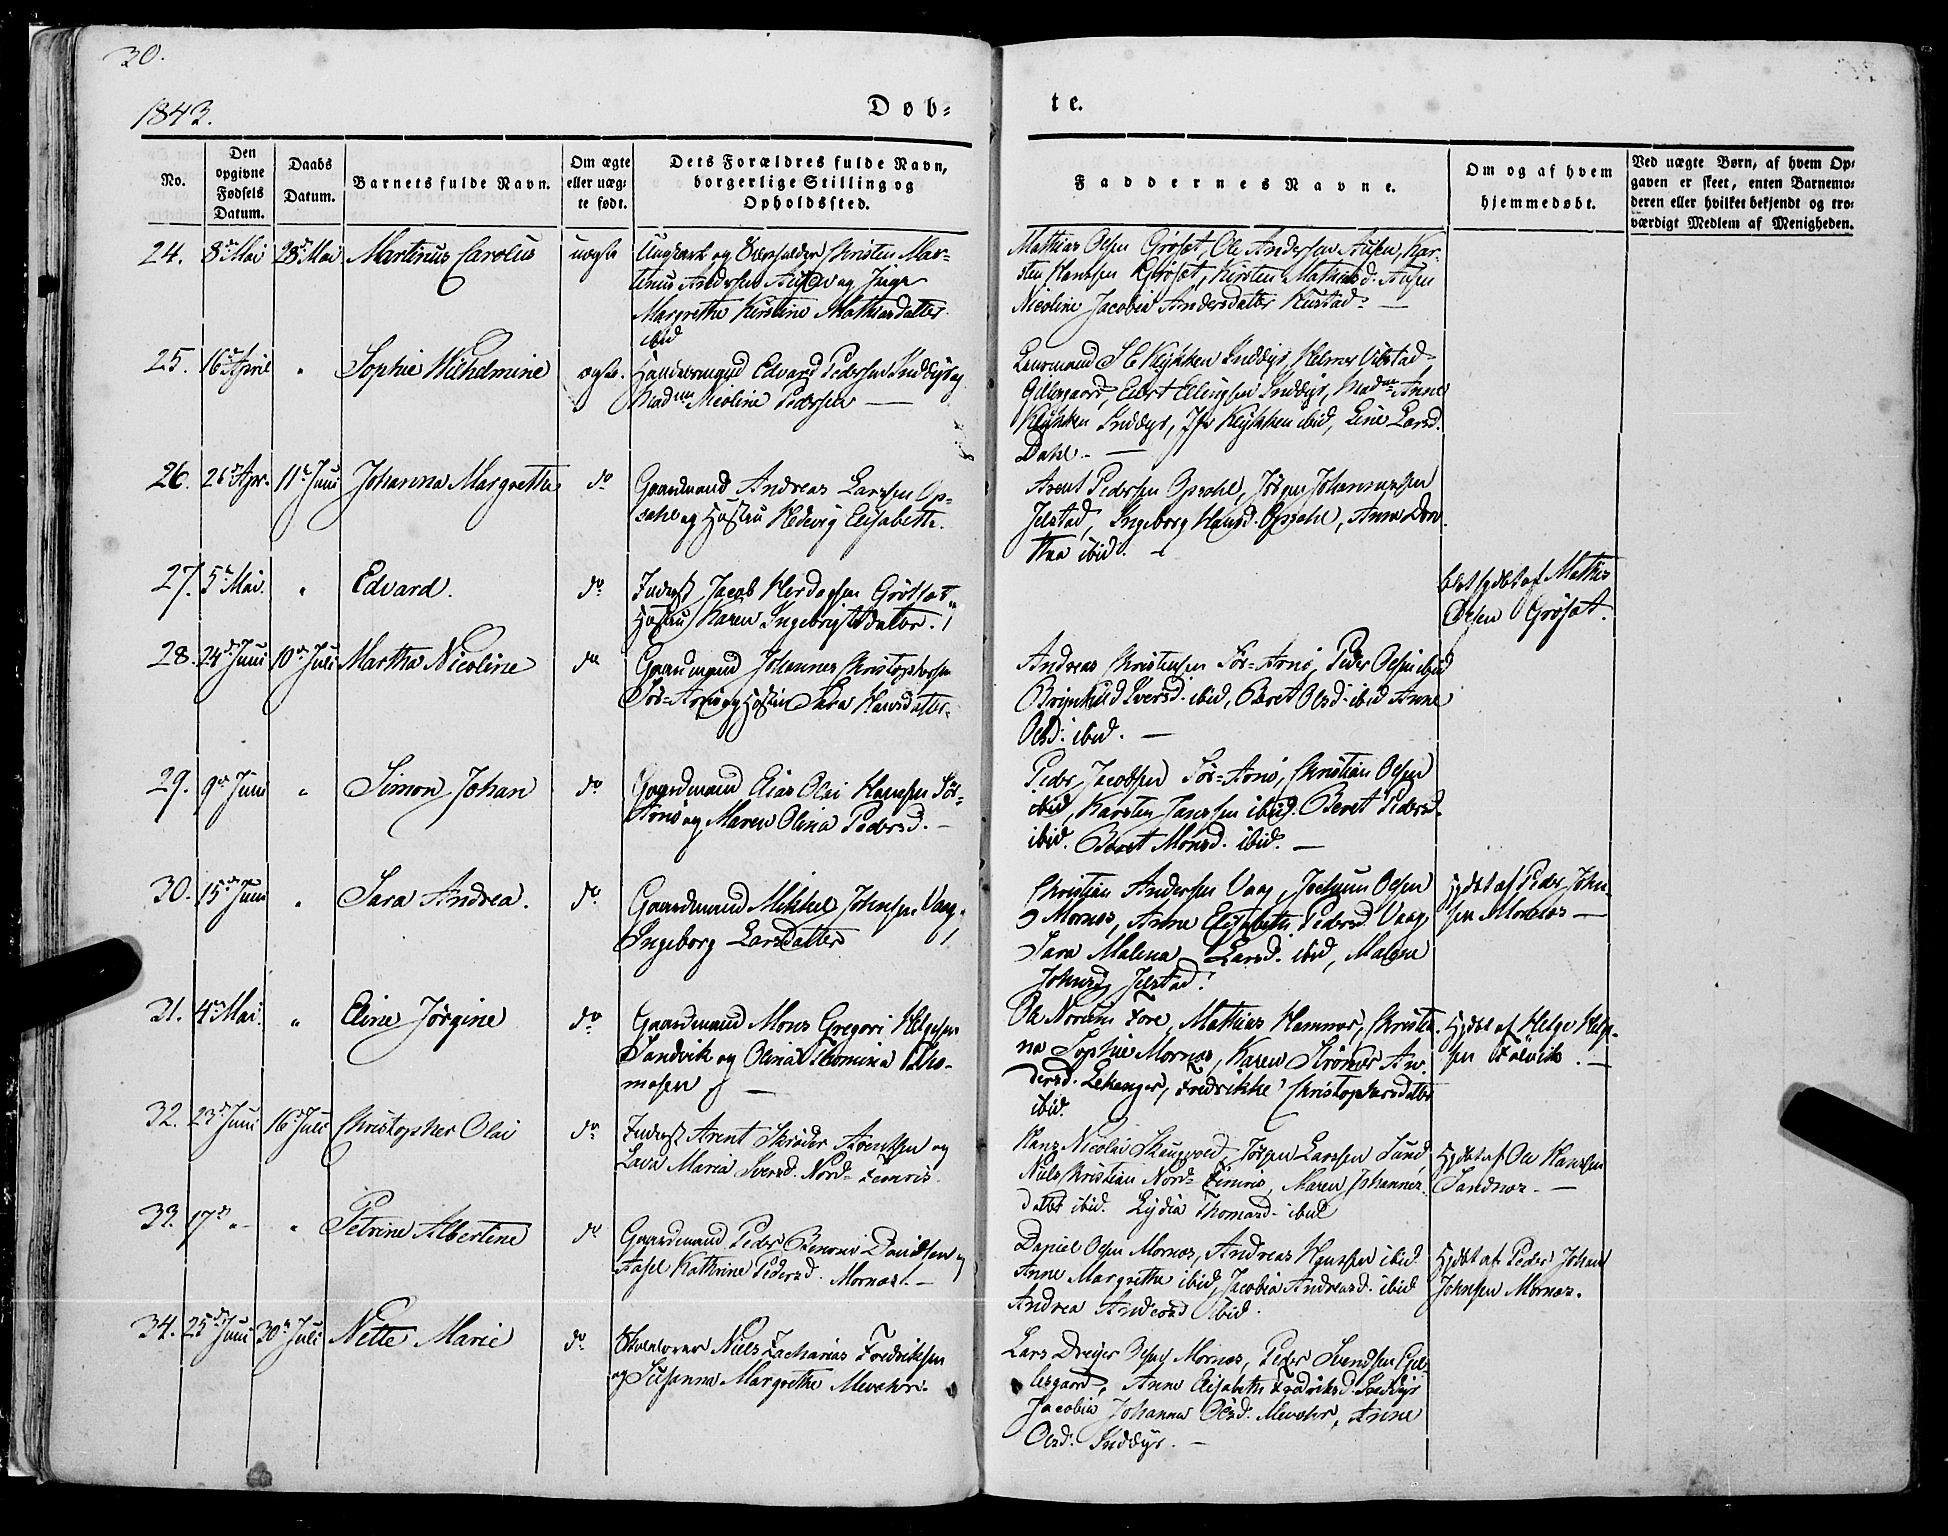 30.
1843.
Døb-
te.
No.
Den opgivne Fødsels Datum.
Daabs Datum.
Barnets fulde Navn.
Om ægte eller uægte født.
Dets Forældres fulde Navn, borgerlige Stilling og Opholdssted.
Faddernes Navne.
Om og af hvem hjemmedøbt.
Ved uægte Børn, af hvem Op-
gaven er skeet, enten Barnemo-
deren eller hvilket bekjendt og tro-
værdigt Medlem af Menigheden.
24. 8de Mai 28de Mai Martinus Carolus uægte
Ungkarl og Christen Mar-
tinus Andersen Ausen og Pige
Margrethe Kirstine Mathiasdatter
ibid
Mathias Olsen Grøsæt, Ole Andersen Ausen, Kar-
sten Hanssen Grøsæt, Kirsten Mathiasd. Ausen
Nicoline Jacobia Andersdatter Kustad
25. 16de April " Sophie Wilhelmine ægte.
Edvard Pedersen Inddyr og
Madme Nicoline Pedersen
Lensmand Klykken Inddyr, Helmer Vibstad
Gillesgaard, Elert Ellingsen Inddyr, Madme Anne
Klykken Inddyr, Jfr Klykken ibid, Line Larsd.
Dahl.
26. 26de Apr. 11te Juni Johanna Margrethe do
Gaardmand Andreas Larssen Op-
sahl og Hustru Hedevig Elisabeth.
Arent Pedersen Opsahl, Jørgen Johannessen
Jelstad, Ingeborg Hansd. Opsahl, Anne Doro-
thea ibid.
27. 5te Mai. " Edvard. do
Inderst Jacob Herdagsen Grøttæt
Hustru Karen Ingebrigtsdatter.
blot hjdøbt af Mathis
Olsen Grøsæt.
28. 24de Juni 10de Juli Martha Nicoline do
Gaardmand Johannes Christophersen
Sør-Arnø og Hustru Sara Hansdatter.
Andreas Christensen Sør-Arnø, Peder Olsen ibid
Brynhild Iversd. ibid, Beret Olsd. ibid Anne
Olsd. ibid.
29. 9de Juni " Simon Johan do
Gaardmand Elias Olai Hanssen Sør-
Arnø og Maren Olina Pedersd.
Peder Jacobsen Sør-Arnø, Christian Olsen
ibid, Karsten Janssen ibid. Beret Pedersd.
ibid. Beret Monsd. ibid.
30. 15de Juni " Sara Andrea. do
Gaardmand Mikkel Johnsen Vaag,
Ingeborg Larsdatter
Christian Andersen Vaag, Jochum Olsen
Mornæs, Anne Elisabeth Pedersd Vaag
Sara Malena Larsd. ibid, Malene
Johnsd, Jelstad.
Hjdbt af Peder John-
sen Mornæs
31. 4de Mai. " Eline Jørgine do
Gaardmand Mons Gregori Helgesen
Sandvik og Olina Thomina Tho-
mesen
Ole Norum Fore, Mathias Hamnes, Christi-
na Sophie Mornæs, Karen Strømes An-
dersd. Lekanger, Fredrikke Christophersdatter
ibid.
Hjdbt af Helge Helge-
sen Følvik.
32. 23de Juni 16de Juli Christopher Olai do
Inderst Arent Skrøder Arentsen og
Lava Maria Iversd. Nord-Femris.
Hans Nicolai Skaugvold, Jørgen Larssen Sund,
Niels Christian Nord-Fimris, Maren Johannes-
datter ibid. Lydia Thomasd. ibid
Hjdbt af Ole Hanssen
Sandnes.
33. 17de " " Petrine Albertine do
Gaardmand Peder Benoni Davidsen og
Aasel Kathrine Pedersd. Mornæs.
Daniel Olsen Mornæs, Andreas Hanssen ibid
Anne Margrethe ibid, Jacobia Andreasd. ibid
Andrea Andersd ibid.
Hjdbt af Peder Johan
Johnsen Mornæs.
34. 25de Juni 30te Juli Nette Marie do
Skolelærer Niels Zacharias Fredriksen
og Susanna Margrethe Mevahr.
Lars Dreyer Olsen Mornæs, Peder Svendsen Gil-
lesgaard, Anne Elisabeth Fredriksd. Inddyr
Jacobia Johanna Olsd. Mevahr, Anne
Olsd. Inddyr.